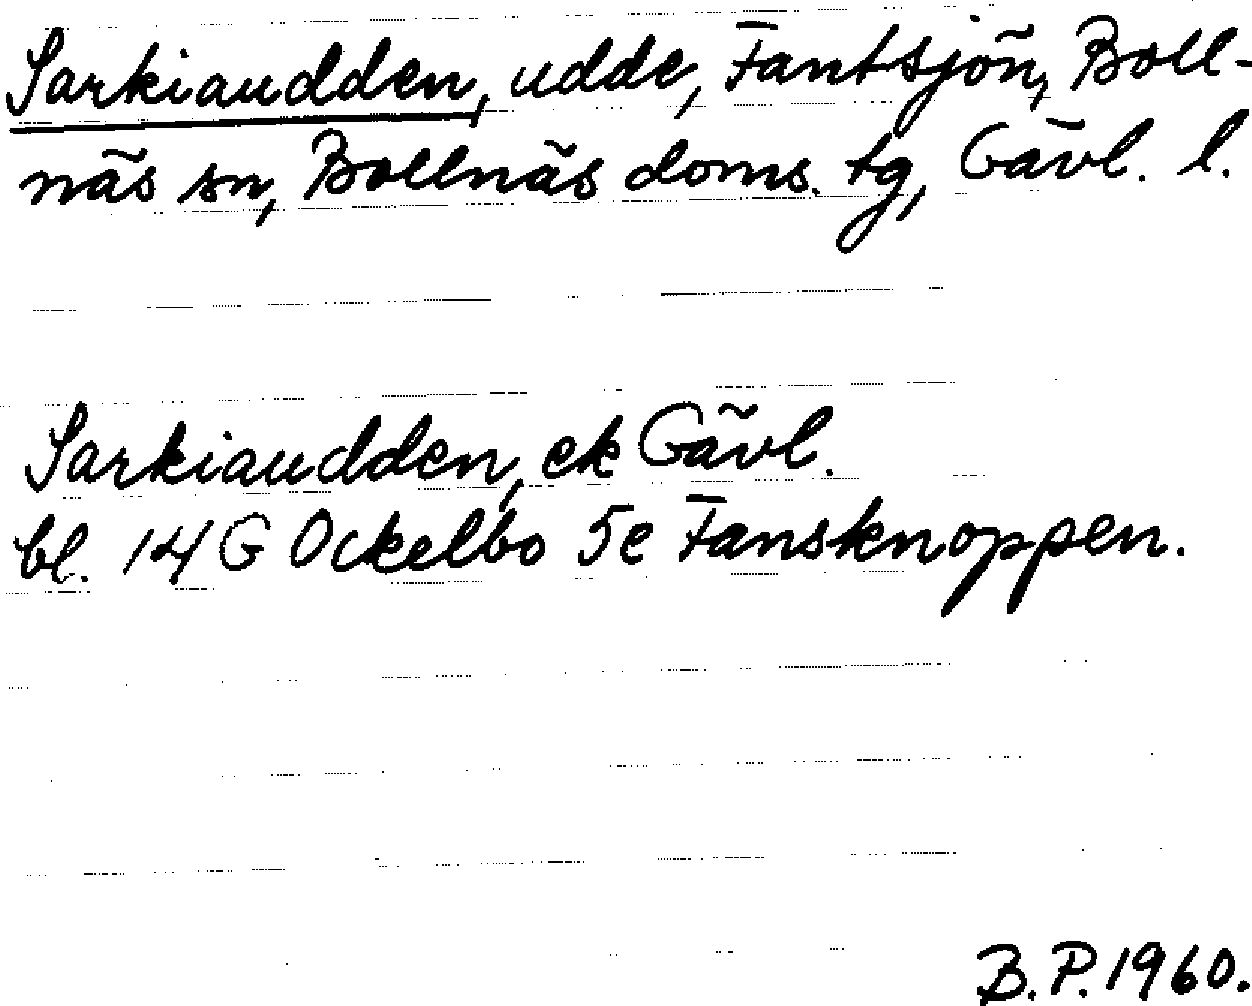 Sarkiaudden, udde, Fantsjön, Boll-
näs sn, Bollnäs doms. tg, Gävl. l.
Sarkiaudden, ek Gävl.
bl. 14 G Ockelbo 5e Fansknoppen.
B.P. 1960.